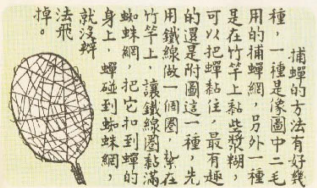 捕蟬的方法有好幾
種，一種是像圖中二毛
用的捕蟬網，另外一種
是在竹竿上黏些漿糊，
可以把蟬黏住，最有趣
的還是附圖這一種，先
用鐵線做一個圈，紮在
竹竿上，讓鐵線圈黏滿
蜘蛛網，把它扣到蟬的
身上，蟬碰到蜘蛛網，
就沒辦
法飛
掉。